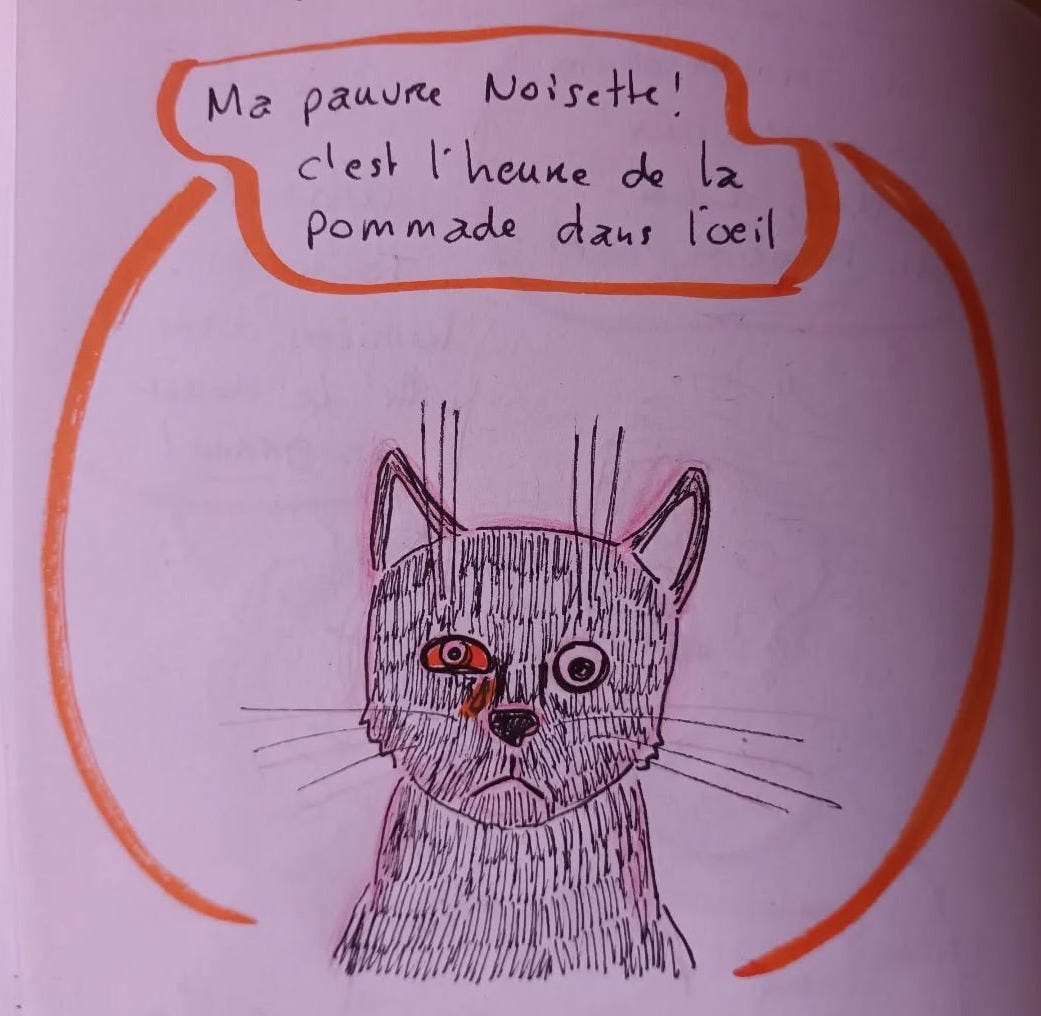 Ma pauvre Noisette!
c'est l'heure de la
pommade dans l'oeil